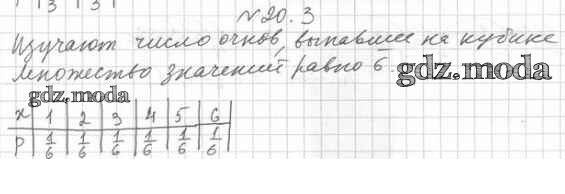 3 3
№20.3
Изучают число очков, выпавшие на кубике
множество значений равно 6.
gdz.moda
gdz.moda
x 1 2 3 4 5 6
P 1/6 1/6 1/6 1/6 1/6 1/6